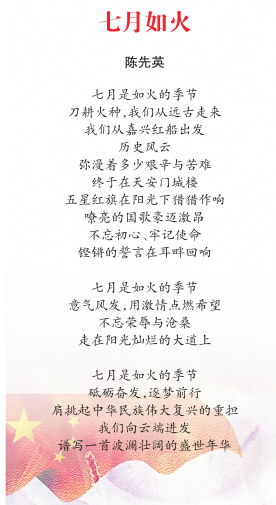 七月如火
陈先英
七月是如火的季节
刀耕火种,我们从远古走来
我们从嘉兴红船出发
历史风云
弥漫着多少艰辛与苦难
终于在天安门城楼
五星红旗在阳光下猎猎作响
嘹亮的国歌豪迈激昂
不忘初心、牢记使命
铿锵的誓言在耳畔回响
七月是如火的季节
意气风发,用激情点燃希望
不忘荣辱与沧桑
走在阳光灿烂的大道上
七月是如火的季节
砥砺奋发,逐梦前行
肩挑起中华民族伟大复兴的重担
我们向云端进发
谱写一首波澜壮阔的盛世年华